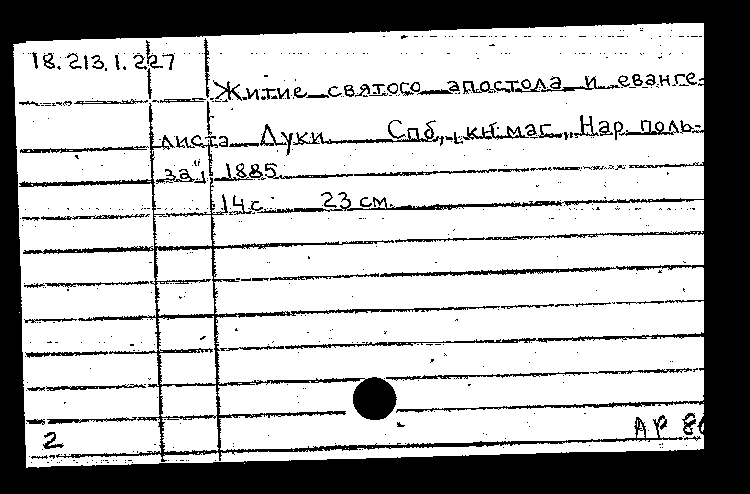 18.213.1.227
Житие святого апостола и еванге-
листа Луки Спб, кн. маг „Нар. поль-
за", 1885.
14 с. 23 см.
2 АР